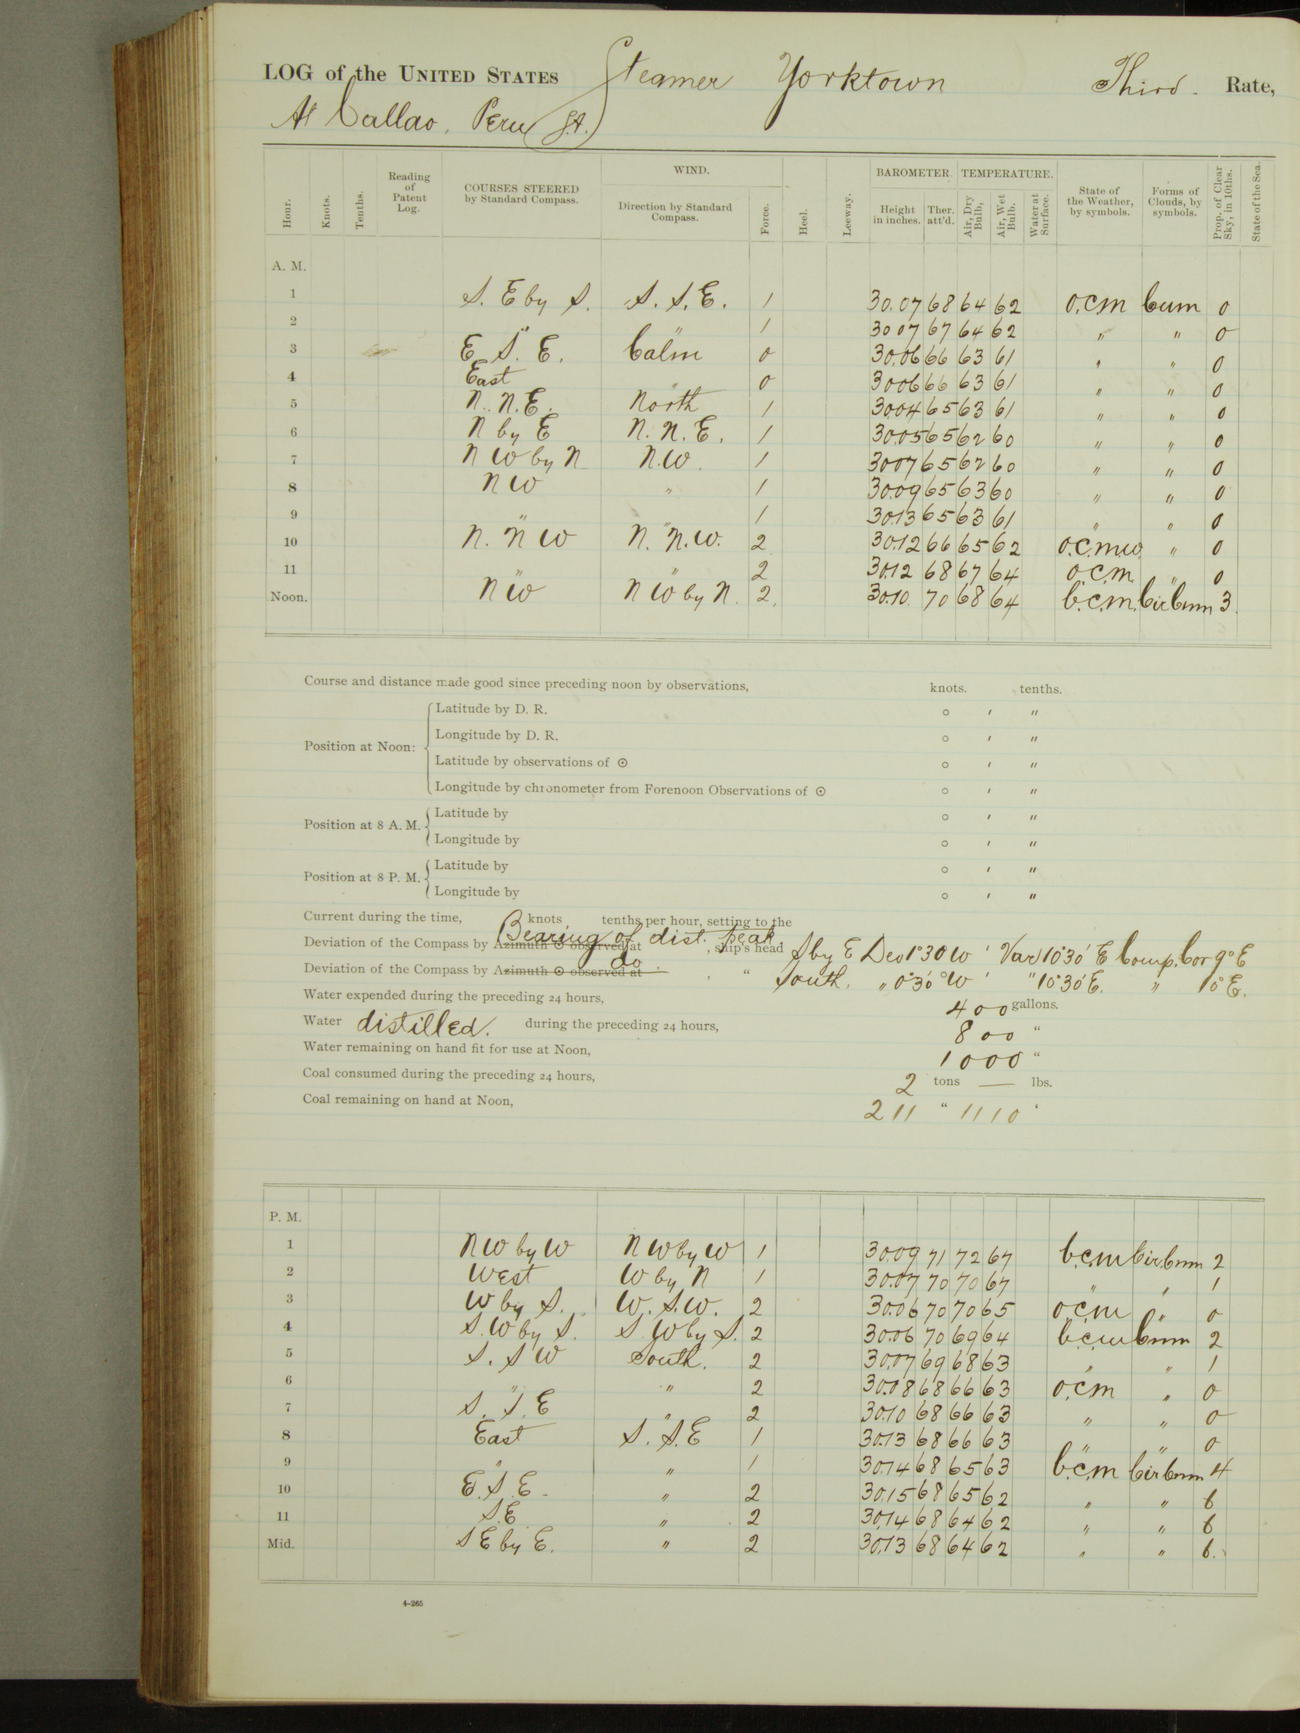 LOG of the UNITED STATES Steamer Yorktown Third. Rate,
At Callao, Peru (S.A.)
Hour. Knots. Tenths. Reading of Patent Log. COURSES STEERED by Standard Compass. WIND. Direction by Standard Compass. Force. Heel. Leeway. BAROMETER. Height in inches. Ther. att'd. TEMPERATURE. Air, Dry Bulb, Air, Wet Bulb. Water at Surface. State of the Weather, by symbols. Forms of Clouds, by symbols. Prop. of Clear Sky, in 10ths. State of the Sea.
A. M.
1 S. E by S. S. S. E. 1 30.07 68 64 62 o.c.m Cum 0
2 " " 1 30 07 67 64 62 " " 0
3 E. S. E. Calm 0 30.06 66 63 61 " " 0
4 East " 0 3006 66 63 61 " " 0
5 N. N. E. North 1 30.04 65 63 61 " " 0
6 N by E N. N. E. 1 30.05 65 62 60 " " 0
7 N W by N N.W. 1 3007 65 62 60 " " 0
8 N W " 1 30.09 65 63 60 " " 0
9 " " 1 30.13 65 63 61 " " 0
10 N. N W N. N. W. 2 30.12 66 65 62 o.c.m.w. " 0
11 " " 2 30.12 68 67 64 o.c.m " 0
Noon. N W N W by N. 2. 30.10. 70 68 64 b.c.m. Cir Cum 3.
Course and distance made good since preceding noon by observations, knots. tenths.
Position at Noon: Latitude by D. R. ° ′ ″
Longitude by D. R. ° ′ ″
Latitude by observations of ☉ ° ′ ″
Longitude by chronometer from Forenoon Observations of ☉ ° ′ ″
Position at 8 A. M. Latitude by ° ′ ″
Longitude by ° ′ ″
Position at 8 P. M. Latitude by ° ′ ″
Longitude by ° ′ ″
Current during the time, knots tenths per hour, setting to the
Bearing of dist. peak
Deviation of the Compass by Azimuth ☉ observed at , ship's head S by E Dev 1° 30 W ' Var 10° 30' E Comp. Cor 9° E
do
Deviation of the Compass by Azimuth ☉ observed at , " South. " 0° 30' W ' " 10° 30' E. " 10° E.
Water expended during the preceding 24 hours, 400 gallons.
Water distilled. during the preceding 24 hours, 800 "
Water remaining on hand fit for use at Noon, 1000 "
Coal consumed during the preceding 24 hours, 2 tons — lbs.
Coal remaining on hand at Noon, 211 " 1110 "
P. M.
1 N W by W N W by W 1 30.09 71 72 67 b.c.m Cir. Cum 2
2 West W by N 1 30.07 70 70 67 " " 1
3 W by S. W. S.W. 2 30.06 70 70 65 o.c.m " 0
4 S.W by S. S W by S. 2 30.06 70 69 64 b.c.m Cum 2
5 S. S W South. 2 30.07 69 68 63 " " 1
6 " " 2 30.08 68 66 63 o.c.m " 0
7 S. S. E " 2 30.10 68 66 63 " " 0
8 East S. S. E 1 30.13 68 66 63 " " 0
9 " " 1 30.14 68 65 63 b.c.m Cir Cum 4
10 E. S. E. " 2 30.15 68 65 62 " " 6
11 S.E " 2 30.14 68 64 62 " " 6
Mid. S E by E. " 2 30.13 68 64 62 " " 6.
4-265